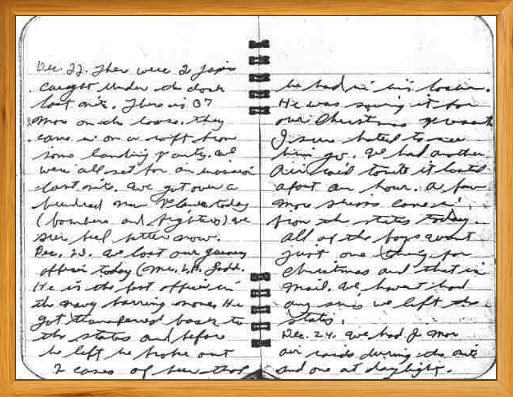 Dec. 22. There were 2 Japs
caught under the dock
last nite. There is 07
more on the loose. they
came in on a raft from
some landing party. we
were all set for an invasion
last nite. We got over a
hundred new planes today
(bombers and fighters) we
sure feel better now.
Dec. 23. We lost our gunnery
officer today (Mr. Todd.
He is the best officer in
the navy barring none. He
got transfered back to
the states and before
he left he broke out
2 cases of beer that
he had in his locker.
He was saving it for
our Christmas present
I sure hated to see
him go. We had another
air raid tonite it lasted
about an hour. a few
more ships came in
from the states today.
all of the boys want
just one thing for
Christmas and that is
mail. We havent had
any since we left the
states.
Dec. 24. We had 2 more
air raids during the nite
and one at daylight.